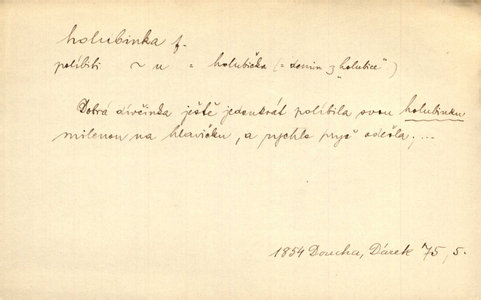 holubinka f.
políbiti ~u = holubička (= demin z „holubice“)
Dobrá dívčinka ještě jedenkrát políbila svou holubinku
milenou na hlavičku, a rychle pryč odešla; ...
1854 Doucha, Dárek 75, 5.